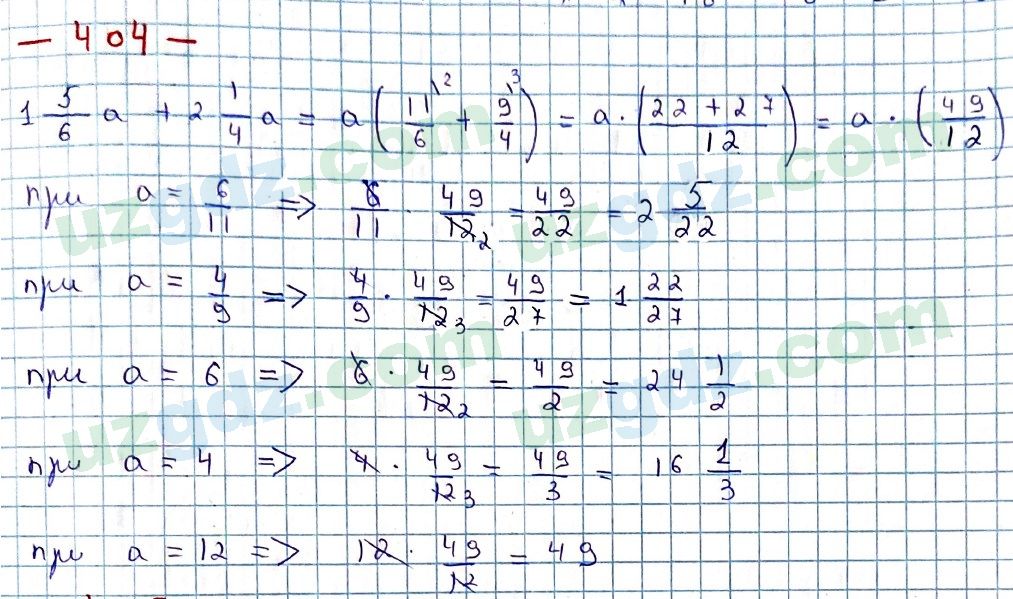 — 404 —
1 5/6 a + 2 1/4 a = a (11/6 \2 + 9/4 \3) = a · (22 + 27 / 12) = a · (49/12)
при a = 6/11 => 6/11 · 49/12 2 = 49/22 = 2 5/22
при a = 4/9 => 4/9 · 49/12 3 = 49/27 = 1 22/27
при a = 6 => 6 · 49/12 2 = 49/2 = 24 1/2
при a = 4 => 4 · 49/12 3 = 49/3 = 16 1/3
при a = 12 => 12 · 49/12 = 49
uzgdz.com
uzgdz.com
uzgdz.com
uzgdz.com